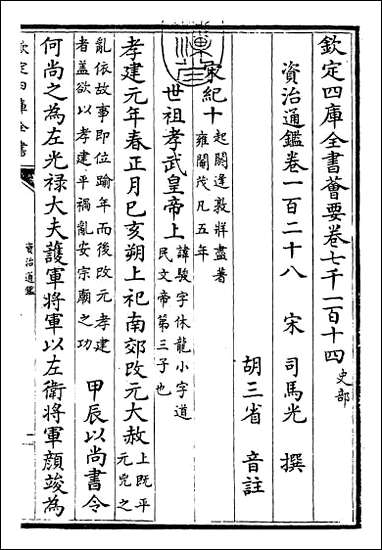 欽定四庫全書薈要卷七千一百十四 史部
資治通鑑卷一百二十八 宋 司馬光 撰
胡三省 音註
宋紀十 起閼逢敦牂盡著雍閹茂凡五年
世祖孝武皇帝上 諱駿字休龍小字道民文帝第三子也
孝建元年春正月己亥朔上祀南郊改元大赦 上既平元凶之亂依故事即位踰年而後改元孝建者蓋欲以孝建平禍亂安宗廟之功 甲辰以尚書令
何尚之為左光禄大夫護軍將軍以左衛將軍顔竣為
欽定四庫全書
資治通鑑
一